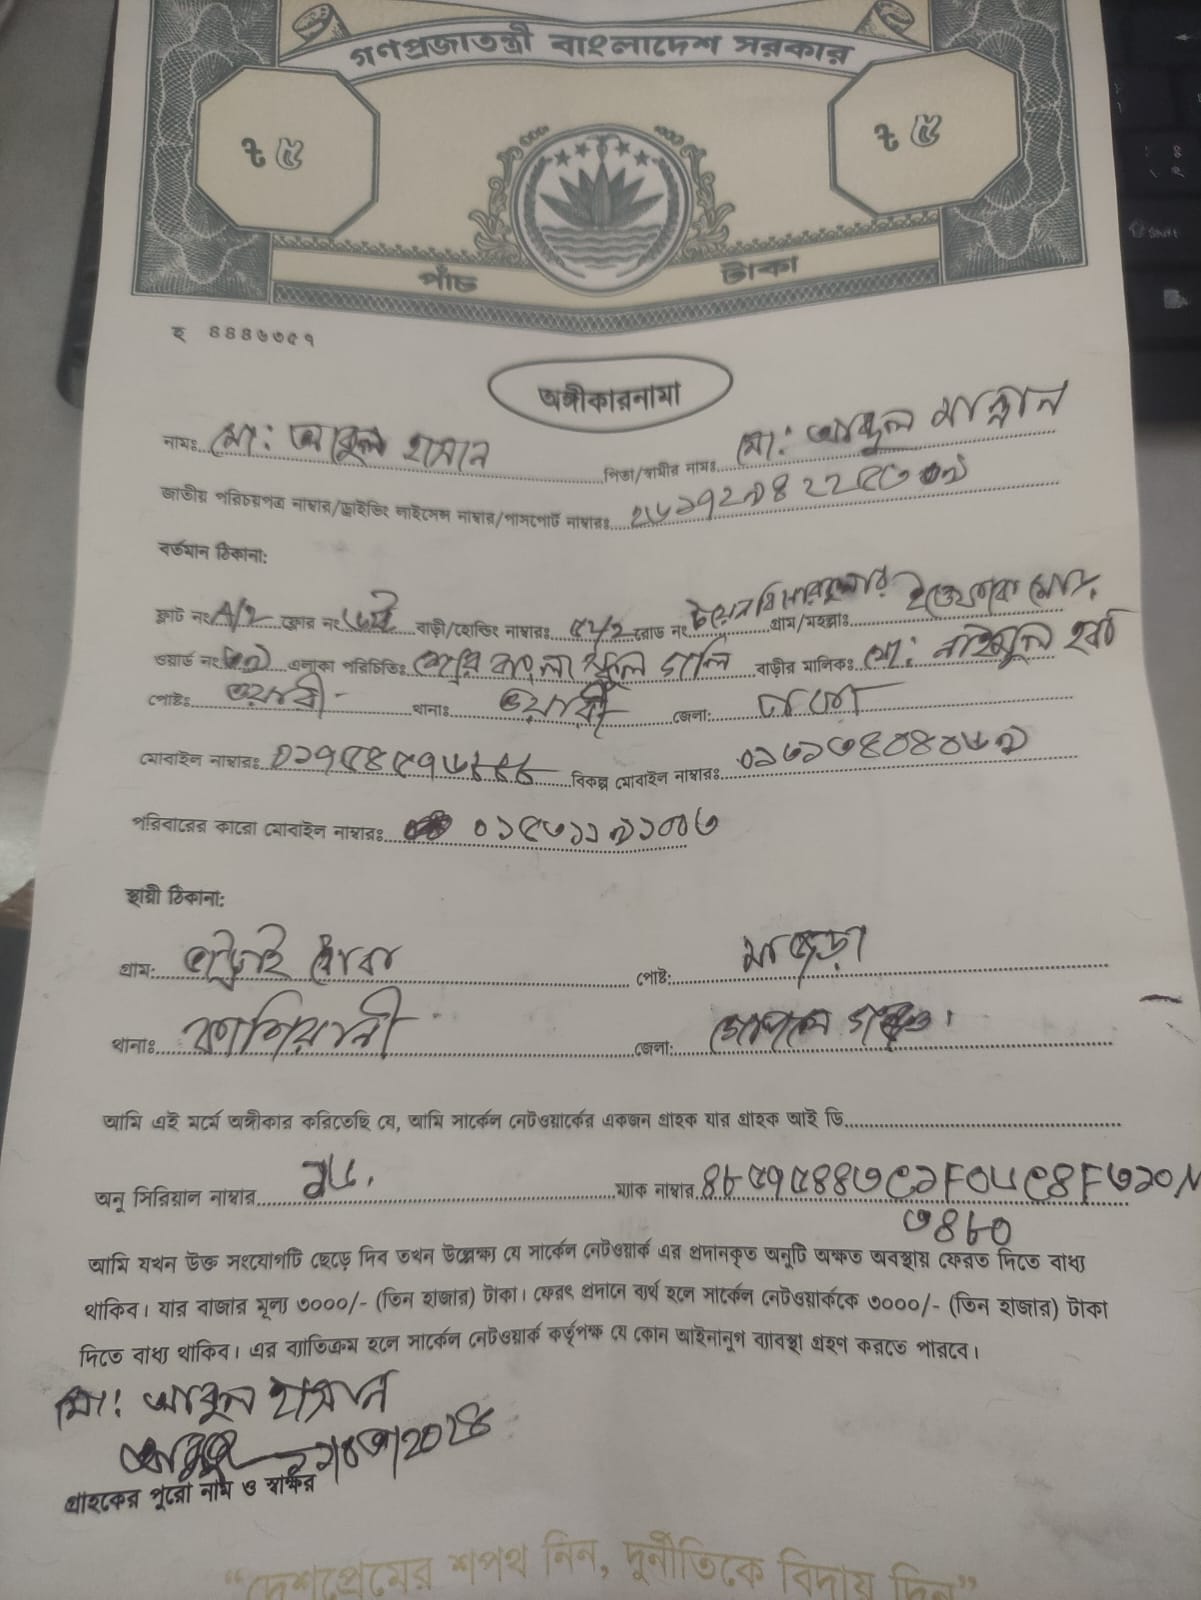 গণপ্রজাতন্ত্রী বাংলাদেশ সরকার
৳ ৫ ৳ ৫
পাঁচ টাকা
হ ৪৪৪৬৩৫৭
অঙ্গীকারনামা
নামঃ মো: আবুল হাসান পিতা/স্বামীর নামঃ মো: আব্দুল মান্নান
জাতীয় পরিচয়পত্র নাম্বার/ড্রাইভিং লাইসেন্স নাম্বার/পাসপোর্ট নাম্বারঃ
বর্তমান ঠিকানা:
ফ্লাট নং A/2 ফ্লোর নং বাড়ী/হোল্ডিং নাম্বারঃ রোড নং গ্রাম/মহল্লাঃ
ওয়ার্ড নং এলাকা পরিচিতিঃ শেরে বাংলা স্কুল গলি বাড়ীর মালিকঃ মো:
পোষ্টঃ ওয়ারী থানাঃ ওয়ারী জেলা: ঢাকা
মোবাইল নাম্বারঃ বিকল্প মোবাইল নাম্বারঃ
পরিবারের কারো মোবাইল নাম্বারঃ
স্থায়ী ঠিকানা:
গ্রাম: পোষ্ট: মাজড়া
থানাঃ কাশিয়ানী জেলা: গোপালগঞ্জ।
আমি এই মর্মে অঙ্গীকার করিতেছি যে, আমি সার্কেল নেটওয়ার্কের একজন গ্রাহক যার গ্রাহক আই ডি
অনু সিরিয়াল নাম্বার ম্যাক নাম্বার
৩৪৮০
আমি যখন উক্ত সংযোগটি ছেড়ে দিব তখন উল্লেক্ষ্য যে সার্কেল নেটওয়ার্ক এর প্রদানকৃত অনুটি অক্ষত অবস্থায় ফেরত দিতে বাধ্য
থাকিব। যার বাজার মূল্য ৩০০০/- (তিন হাজার) টাকা। ফেরৎ প্রদানে ব্যর্থ হলে সার্কেল নেটওয়ার্ককে ৩০০০/- (তিন হাজার) টাকা
দিতে বাধ্য থাকিব। এর ব্যাতিক্রম হলে সার্কেল নেটওয়ার্ক কর্তৃপক্ষ যে কোন আইনানুগ ব্যাবস্থা গ্রহণ করতে পারবে।
মো: আবুল হাসান
গ্রাহকের পুরো নাম ও স্বাক্ষর
“দেশপ্রেমের শপথ নিন, দুর্নীতিকে বিদায় দিন”